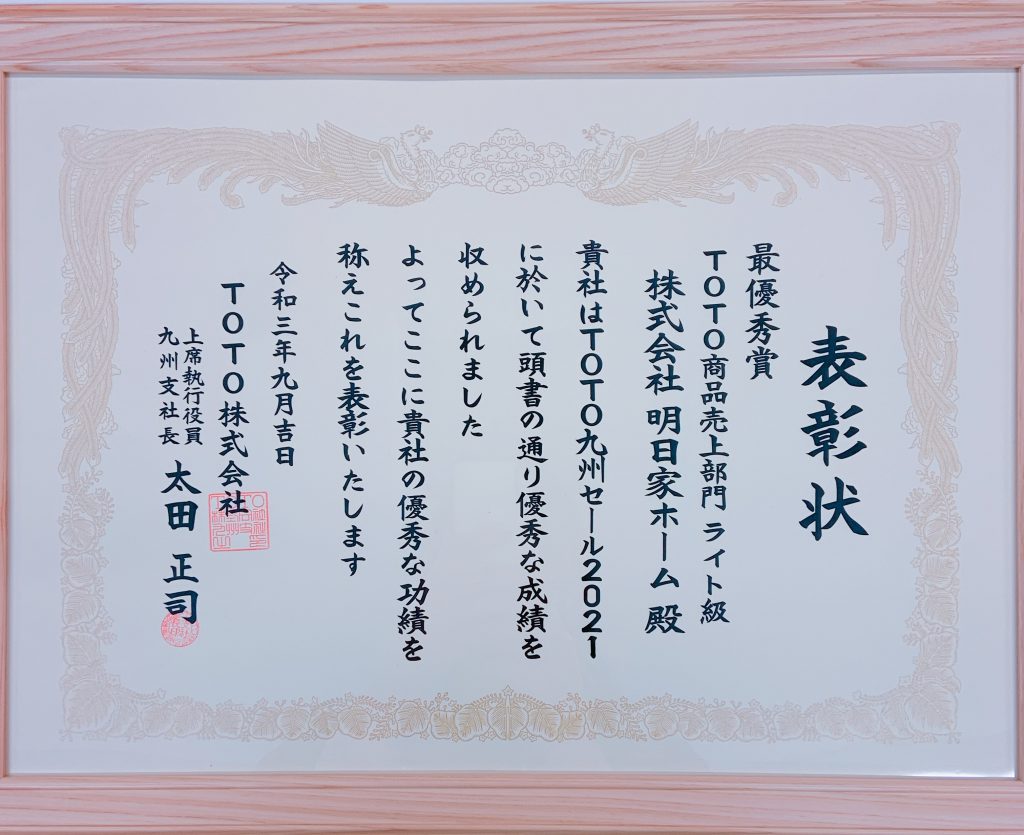 表彰状
最優秀賞
TOTO商品売上部門 ライト級
株式会社 明日家ホーム 殿
貴社はTOTO九州セール2021
に於いて頭書の通り優秀な成績を
収められました
よってここに貴社の優秀な功績を
称えこれを表彰いたします
令和三年九月吉日
TOTO株式会社
上席執行役員
九州支社長 太田 正司